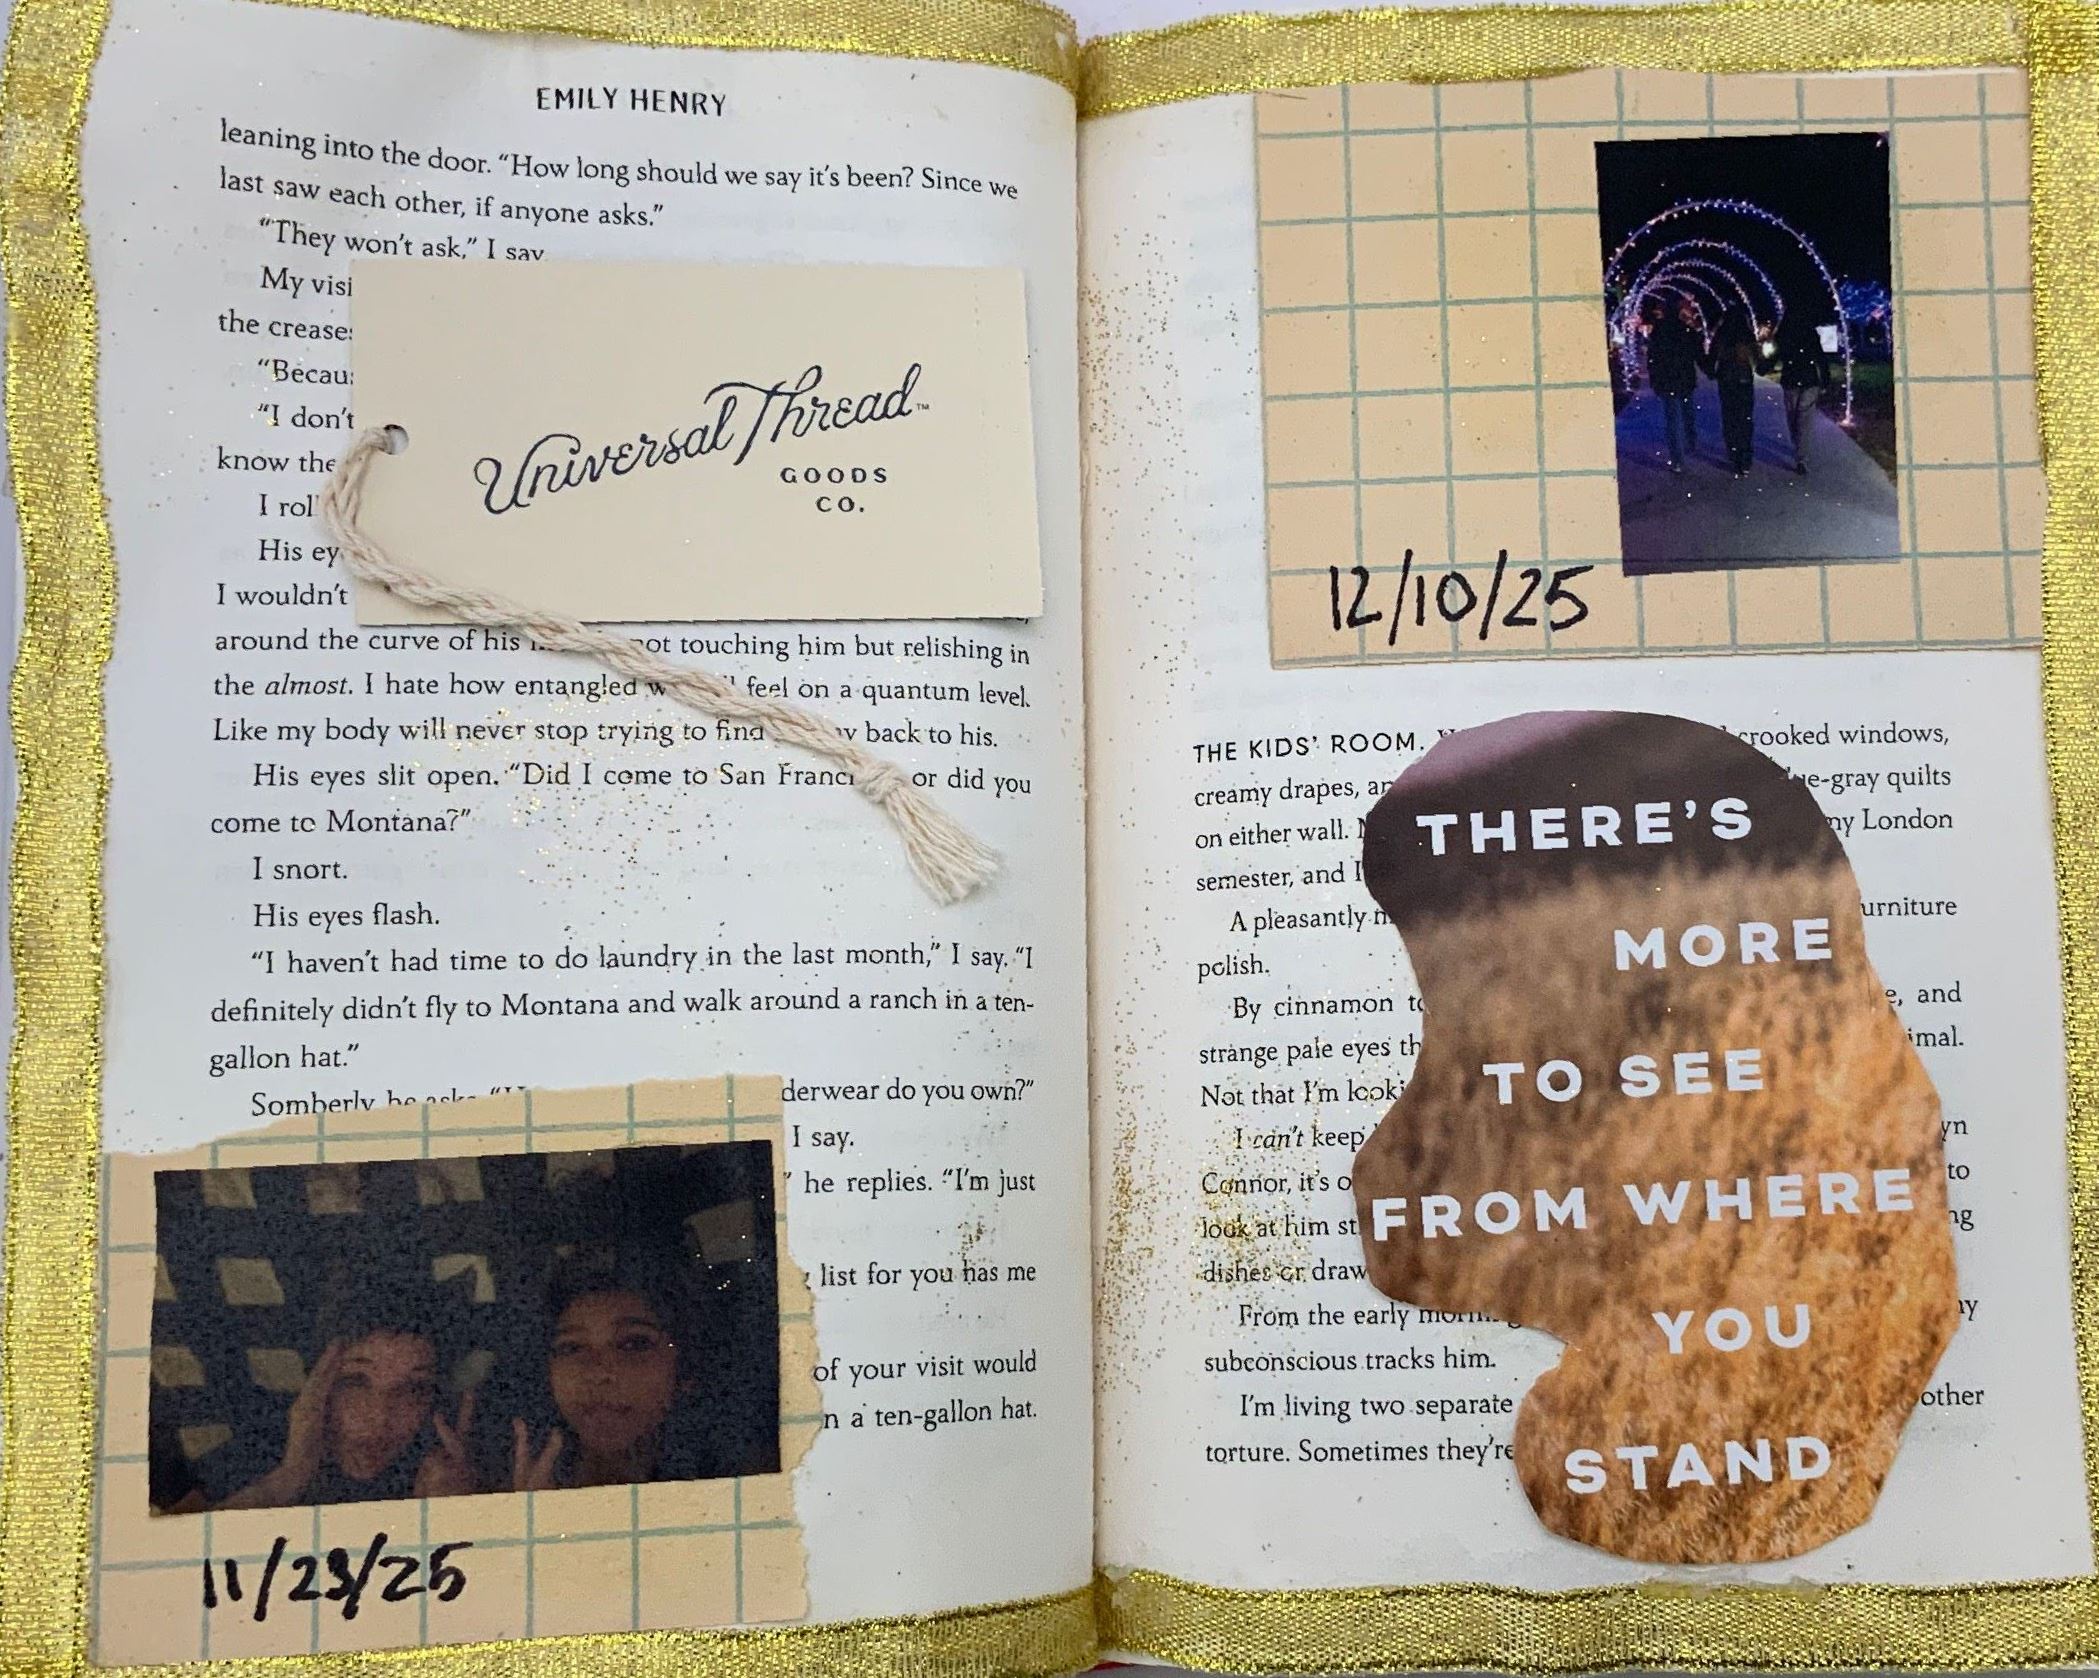 EMILY HENRY
leaning into the door. “How long should we say it’s been? Since we
last saw each other, if anyone asks.”
“They won’t ask,” I say
My visi
the crease
“Becau
“I don’t
know the
I rol
His ey
I wouldn’t
Universal Thread™
GOODS
CO.
around the curve of his not touching him but relishing in
the almost. I hate how entangled feel on a quantum level.
Like my body will never stop trying to find back to his.
His eyes slit open. “Did I come to San Franci or did you
come to Montana?”
I snort.
His eyes flash.
“I haven’t had time to do laundry in the last month,” I say. “I
definitely didn’t fly to Montana and walk around a ranch in a ten-
gallon hat.”
Somberly he asks derwear do you own?”
I say.
” he replies. “I’m just
list for you has me
of your visit would
n a ten-gallon hat.
11/23/25
12/10/25
THE KIDS’ ROOM. crooked windows,
creamy drapes, ue-gray quilts
on either wall. my London
semester, and I
A pleasantly urniture
polish.
By cinnamon e, and
strange pale eyes th imal.
Not that I’m looki
I can’t keep yn
Connor, it’s o to
look at him st ng
dishes or draw
From the early morning
subconscious tracks him.
I’m living two separate other
torture. Sometimes they’re
THERE’S
MORE
TO SEE
FROM WHERE
YOU
STAND